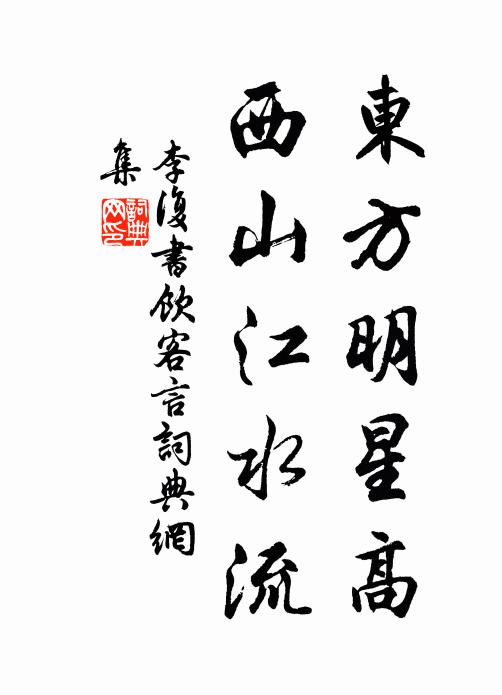 東方明星高
西山江水流
李復書飲客言詞典網
集
詞典
网印